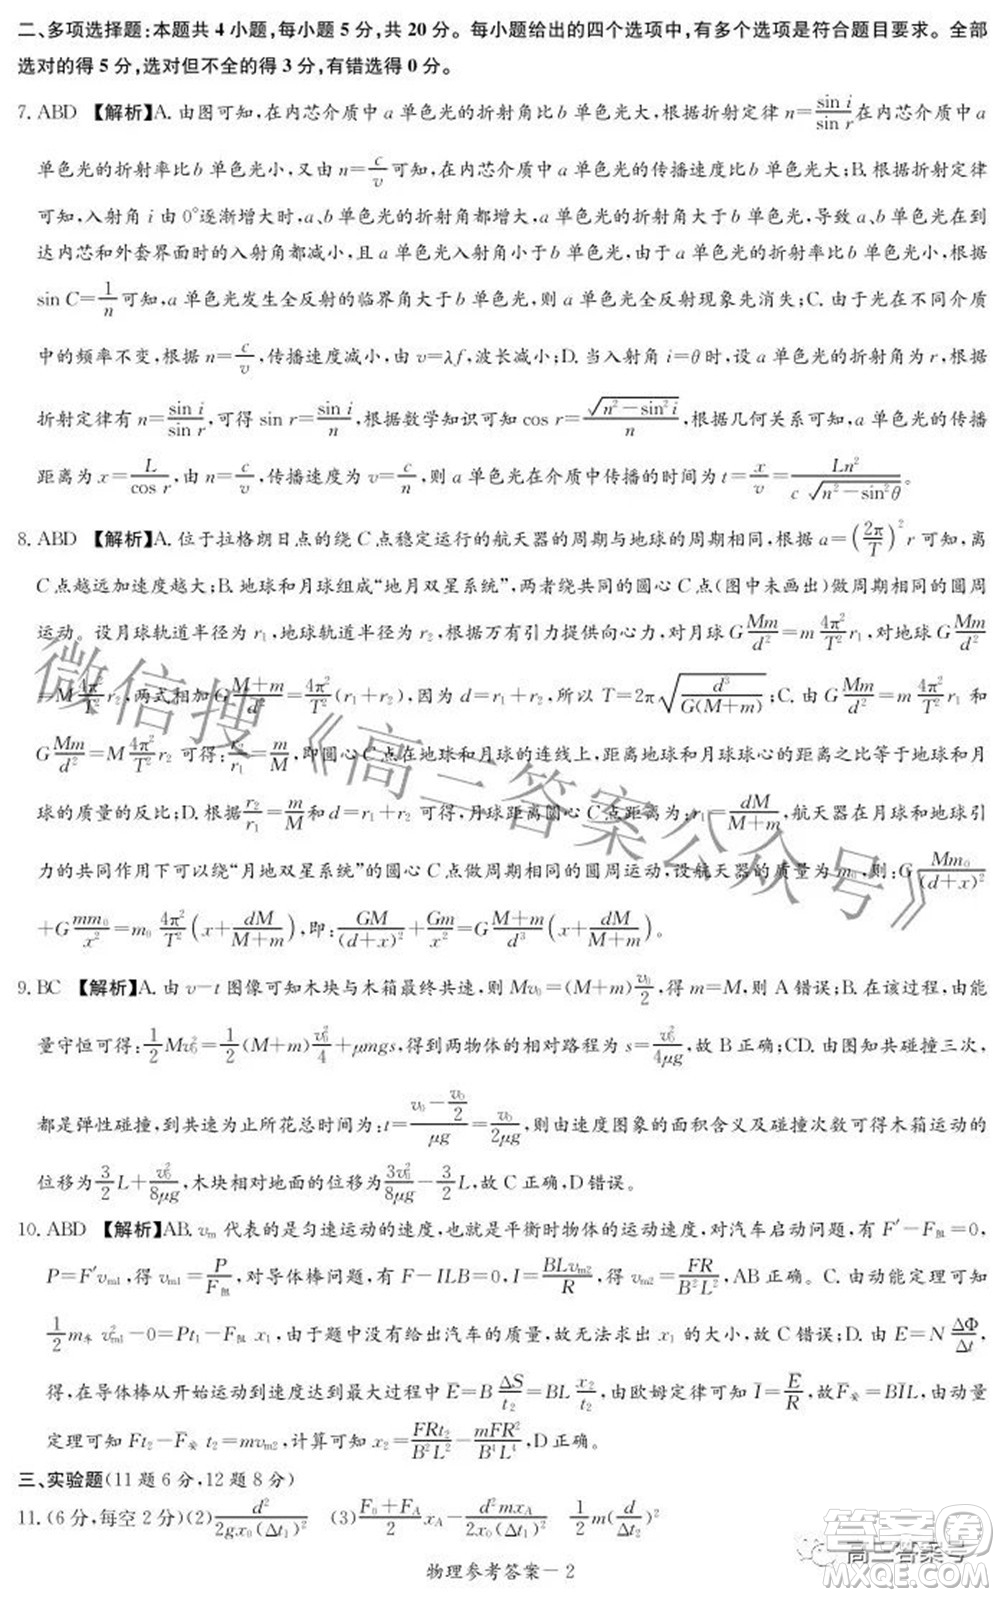 二、多项选择题:本题共 4 小题,每小题 5 分,共 20 分。每小题给出的四个选项中,有多个选项是符合题目要求。全部
选对的得 5 分,选对但不全的得 3 分,有错选得 0 分。
7. ABD 【解析】A. 由图可知,在内芯介质中 a 单色光的折射角比 b 单色光大,根据折射定律 n=sin i/sin r 在内芯介质中 a
单色光的折射率比 b 单色光小,又由 n=c/v 可知,在内芯介质中 a 单色光的传播速度比 b 单色光大;B. 根据折射定律
可知,入射角 i 由 0°逐渐增大时,a、b 单色光的折射角都增大,a 单色光的折射角大于 b 单色光,导致 a、b 单色光在到
达内芯和外套界面时的入射角都减小,且 a 单色光入射角小于 b 单色光,由于 a 单色光的折射率比 b 单色光小,根据
sin C=1/n 可知,a 单色光发生全反射的临界角大于 b 单色光,则 a 单色光全反射现象先消失;C. 由于光在不同介质
中的频率不变,根据 n=c/v,传播速度减小,由 v=λf,波长减小;D. 当入射角 i=θ 时,设 a 单色光的折射角为 r,根据
折射定律有 n=sin i/sin r,可得 sin r=sin i/n,根据数学知识可知 cos r=√(n²−sin²i)/n,根据几何关系可知,a 单色光的传播
距离为 x=L/cos r,由 n=c/v,传播速度为 v=c/n,则 a 单色光在介质中传播的时间为 t=x/v=Ln²/(c√(n²−sin²θ))。
8. ABD 【解析】A. 位于拉格朗日点的绕 C 点稳定运行的航天器的周期与地球的周期相同,根据 a=(2π/T)²r 可知,离
C 点越远加速度越大;B. 地球和月球组成“地月双星系统”,两者绕共同的圆心 C 点(图中未画出)做周期相同的圆周
运动。设月球轨道半径为 r₁,地球轨道半径为 r₂,根据万有引力提供向心力,对月球 G Mm/d²=m 4π²/T² r₁,对地球 G Mm/d²
=M 4π²/T² r₂,两式相加 G (M+m)/d²=4π²/T² (r₁+r₂),因为 d=r₁+r₂,所以 T=2π√(d³/G(M+m));C. 由 G Mm/d²=m 4π²/T² r₁ 和
G Mm/d²=M 4π²/T² r₂ 可得:r₂/r₁=m/M,即圆心 C 点在地球和月球的连线上,距离地球和月球球心的距离之比等于地球和月
球的质量的反比;D. 根据 r₂/r₁=m/M 和 d=r₁+r₂ 可得,月球距离圆心 C 点距离为:r₁=dM/(M+m),航天器在月球和地球引
力的共同作用下可以绕“月地双星系统”的圆心 C 点做周期相同的圆周运动,设航天器的质量为 m₀,则:G Mm₀/(d+x)²
+G mm₀/x²=m₀ 4π²/T² (x+dM/(M+m)),即:GM/(d+x)²+Gm/x²=G (M+m)/d³ (x+dM/(M+m))。
9. BC 【解析】A. 由 v−t 图像可知木块与木箱最终共速,则 Mv₀=(M+m)v₀/2,得 m=M,则 A 错误;B. 在该过程,由能
量守恒可得:1/2 Mv₀²=1/2 (M+m) v₀²/4+μmgs,得到两物体的相对路程为 s=v₀²/4μg,故 B 正确;CD. 由图知共碰撞三次,
都是弹性碰撞,到共速为止所花总时间为:t=(v₀−v₀/2)/μg=v₀/2μg,则由速度图象的面积含义及碰撞次数可得木箱运动的
位移为 3/2 L+v₀²/8μg,木块相对地面的位移为 3v₀²/8μg−3/2 L,故 C 正确,D 错误。
10. ABD 【解析】AB. vₘ 代表的是匀速运动的速度,也就是平衡时物体的运动速度,对汽车启动问题,有 F′−F阻=0,
P=F′vₘ₁,得 vₘ₁=P/F阻,对导体棒问题,有 F−ILB=0,I=BLvₘ₂/R,得 vₘ₂=FR/B²L²,AB 正确。C. 由动能定理可知
1/2 m车 vₘ₁²−0=Pt₁−F阻 x₁,由于题中没有给出汽车的质量,故无法求出 x₁ 的大小,故 C 错误;D. 由 E=N ΔΦ/Δt,
得,在导体棒从开始运动到速度达到最大过程中 E̅=B ΔS/t₂=BL x₂/t₂,由欧姆定律可知 I̅=E̅/R,故 F̅安=BI̅L,由动量
定理可知 Ft₂−F̅安 t₂=mvₘ₂,计算可知 x₂=FRt₂/B²L²−mFR²/B⁴L⁴,D 正确。
三、实验题(11 题 6 分,12 题 8 分)
11.(6 分,每空 2 分)(2) d²/2gx₀(Δt₁)² (3) (F₀+F_A)/2 x_A−d²mx_A/2x₀(Δt₁)² 1/2 m(d/Δt₂)²
物理参考答案－2
微信搜《高三答案公众号》
高三答案号
答案圈
MXQE.COM